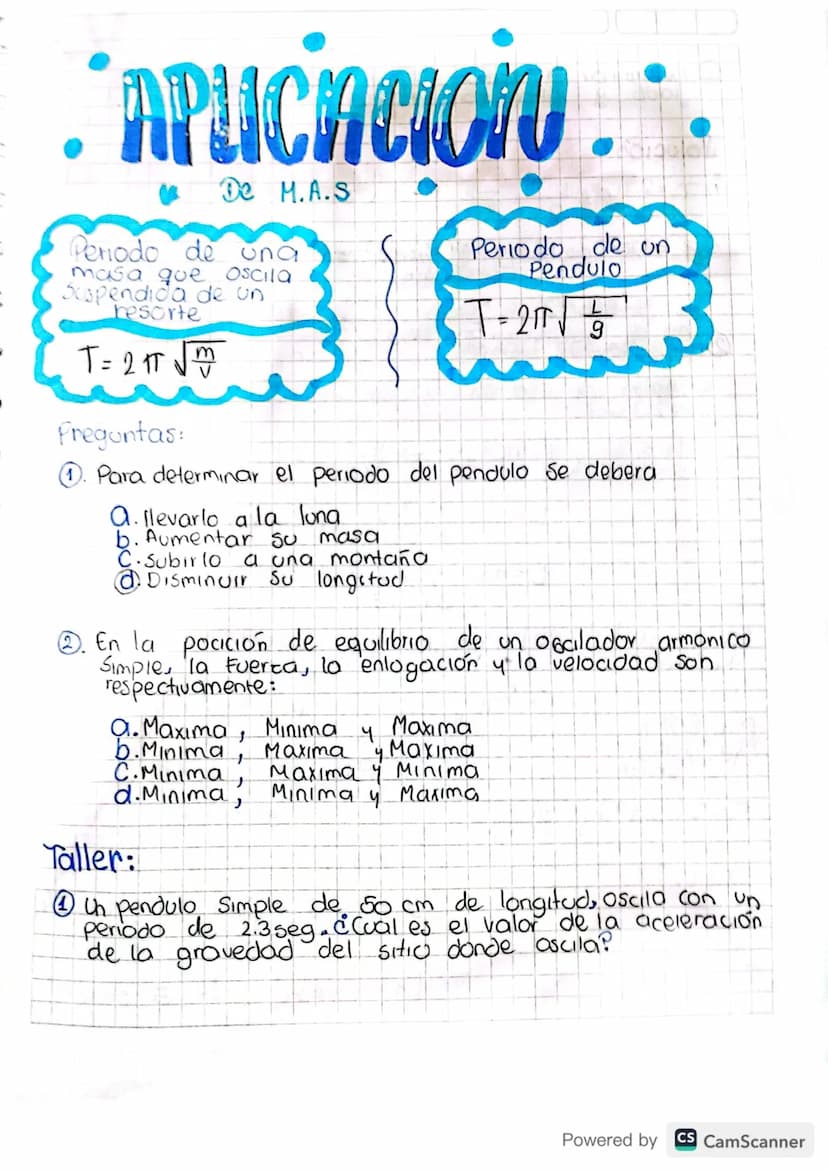 APLICACION
De M.A.S
Periodo de una
masa que oscila
suspendida de un
resorte
T = 2 π √m/v
Periodo de un
Pendulo
T = 2π √L/g
Preguntas:
1. Para determinar el periodo del pendulo se debera
a. llevarlo a la luna
b. Aumentar su masa
c. Subirlo a una montaño
d. Disminuir su longitud
2. En la pocición de equilibrio de un oscilador armonico
Simple, la fuerza, la enlogación y la velocidad son
respectivamente:
a. Maxima, Minima y Maxima
b. Minima, Maxima y Maxima
C. Minima, Maxima y Minima
d. Minima, Minima y Maxima
Taller:
1 Un pendulo Simple de 50 cm de longitud, oscila con un
periodo de 2.3 seg. ¿Cual es el valor de la aceleración
de la gravedad del sitio donde oscila?
Powered by CS CamScanner